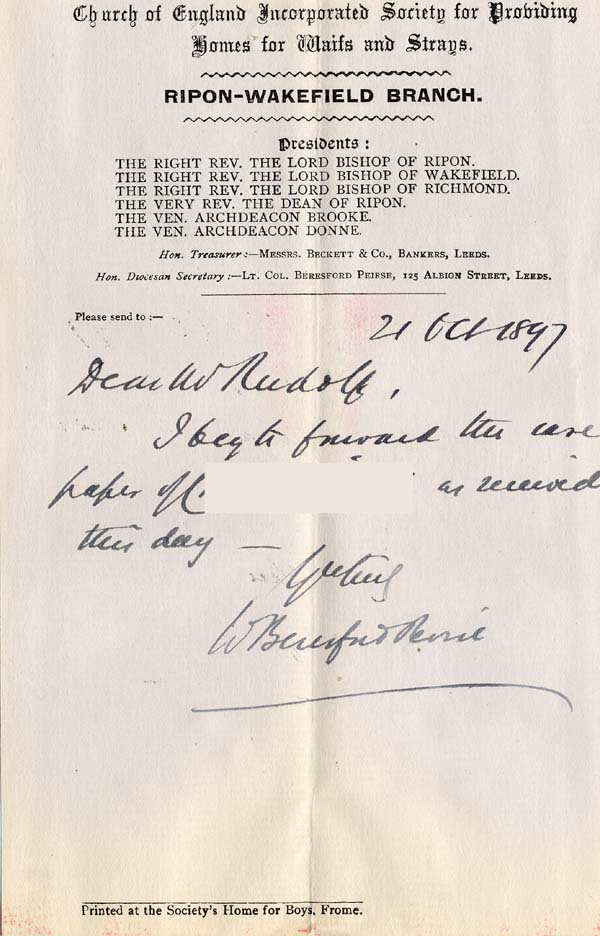 Church of England Incorporated Society for Providing
Homes for Waifs and Strays.
RIPON-WAKEFIELD BRANCH.
Presidents :
THE RIGHT REV. THE LORD BISHOP OF RIPON.
THE RIGHT REV. THE LORD BISHOP OF WAKEFIELD.
THE RIGHT REV. THE LORD BISHOP OF RICHMOND.
THE VERY REV. THE DEAN OF RIPON.
THE VEN. ARCHDEACON BROOKE.
THE VEN. ARCHDEACON DONNE.
Hon. Treasurer:—MESSRS. BECKETT & CO., BANKERS, LEEDS.
Hon. Diocesan Secretary:—LT. COL. BERESFORD PEIRSE, 125 ALBION STREET, LEEDS.
Please send to :—
21 Oct 1897
Dear Mr Rudolf,
I beg to forward the case
paper of C. as received
this day —
Yrs truly
W Beresford Peirse
Printed at the Society's Home for Boys, Frome.